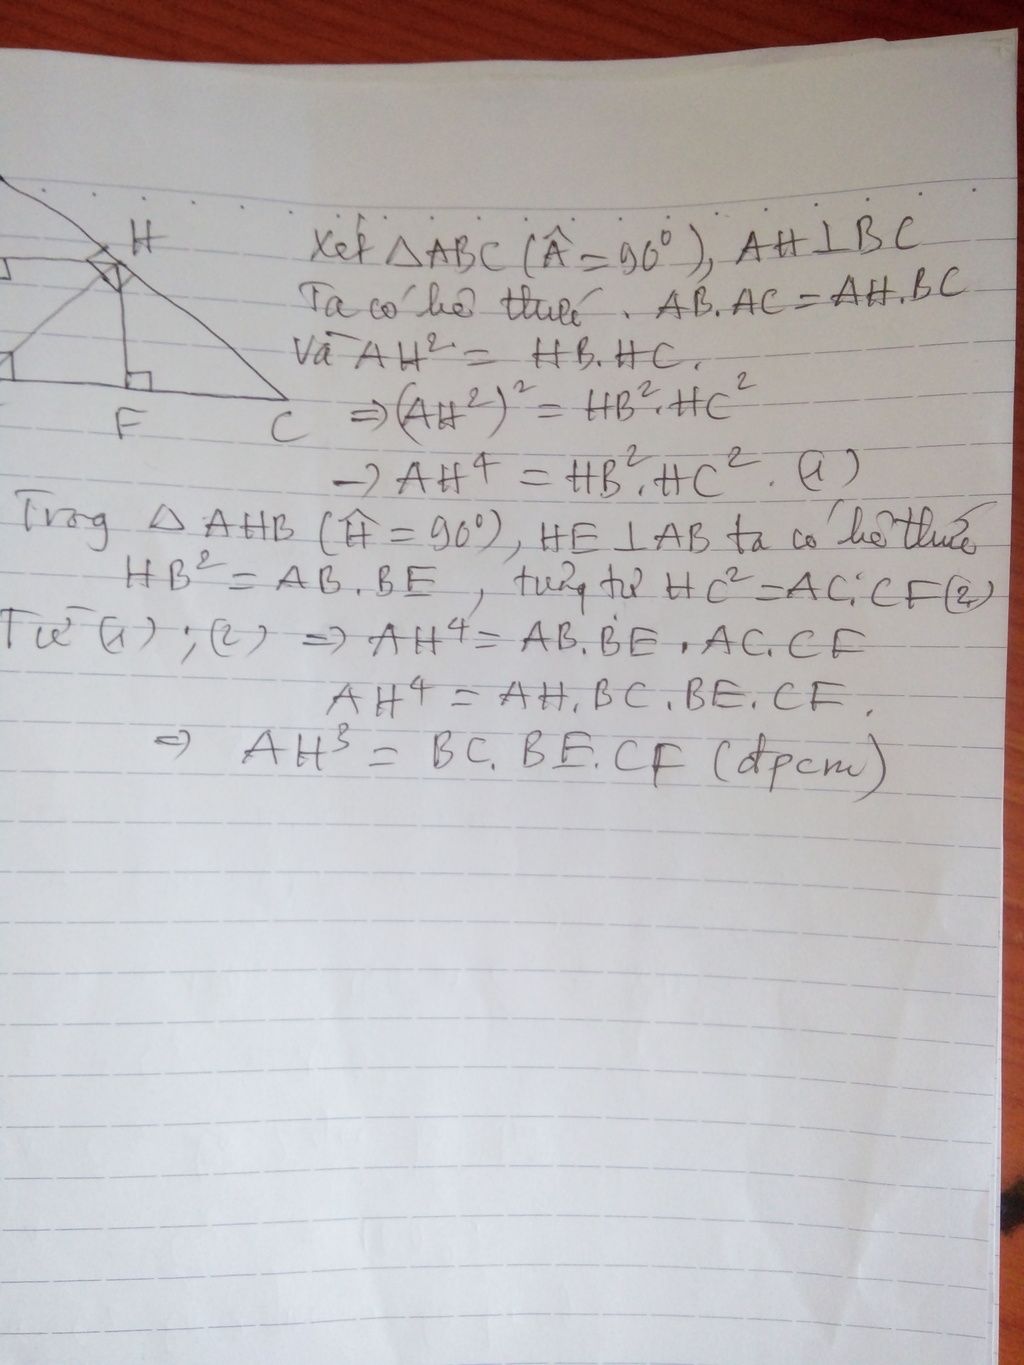 H
Xét △ABC (Â = 90⁰), AH⊥BC
Ta có hệ thức. AB.AC = AH.BC
Và AH² = HB.HC.
⇒(AH²)² = HB².HC²
F C
→ AH⁴ = HB².HC². (1)
Trong △ AHB (Ĥ = 90⁰), HE⊥AB ta có hệ thức
HB² = AB.BE, tương tự HC² = AC.CF(2)
Từ (1); (2) ⇒ AH⁴ = AB.BE.AC.CF
AH⁴ = AH.BC.BE.CF.
⇒ AH³ = BC.BE.CF (đpcm)